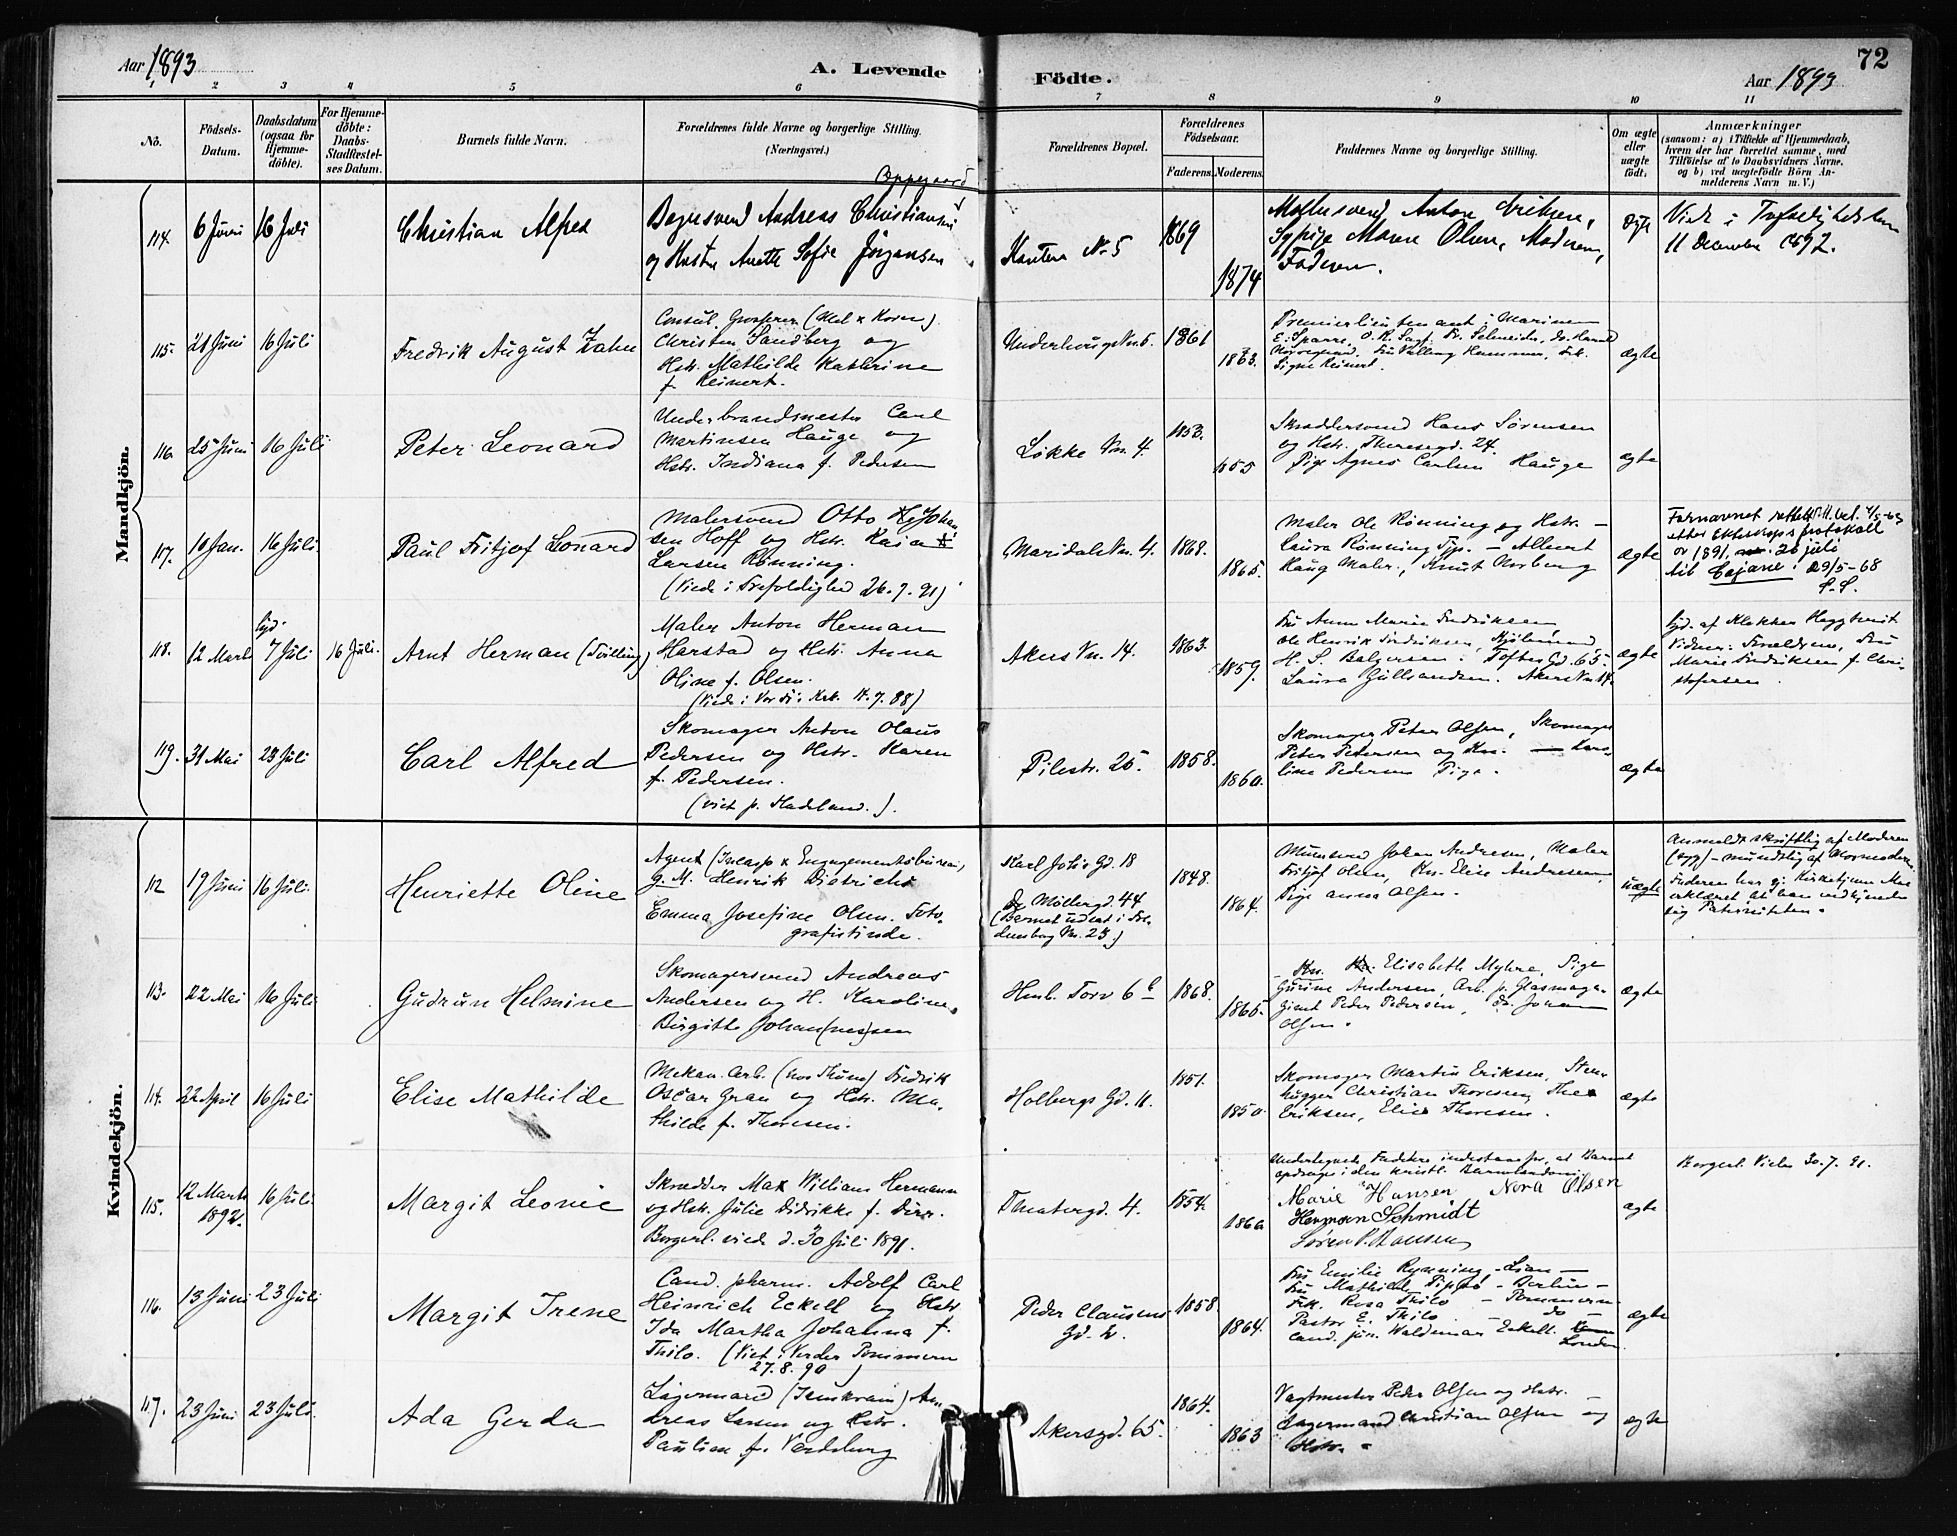 Aar 1893
A. Levende Födte.
72
Aar 1893
1 2 3 4 5 6 7 8 9 10 11
No.
Födsels-Datum.
Daabsdatum (ogsaa for Hjemmedöbte).
For Hjemmedöbte: Daabs-Stadfæstelses Datum.
Barnets fulde Navn.
Forældrenes fulde Navne og borgerlige Stilling.
(Næringsvei.)
Forældrenes Bopæl.
Forældrenes Födselsaar.
Faderens. Moderens.
Faddernes Navne og borgerlige Stilling.
Om ægte eller uægte födt.
Anmærkninger
(saasom: a) i Tilfælde af Hjemmedaab, hvem der har forrettet samme, med Tilföielse af to Daabsvidners Navne, og b) ved uægtefödte Börn Anmelderens Navn m. V.)
Mandkjön.
Oppegaard
114. 6 Juni 16 Juli
Christian Alfred
Andreas Christiansen
og Hustru Anette Sofie Jörgensen
No 5
1869
1874
Anton Eriksen,
Sypige Maren Olsen, Moderen,
Faderen.
Ægte
Viede i Trefoldighedskirken
11 December 1892.
115. 21 Juni 16 Juli
Fredrik August Zahn
Consul, Grosserer (Mel & Korn)
Christen Sandberg og
Hstr. Mathilde Kathrine
f. Reinert.
Underhaugsvn. 5.
1861
1863.
Premierlieutenant i Marinen
E. Sparre,
Signe Reinert.
ægte
116. 25 Juni 16 Juli
Peter Leonard
Underbrandmester Carl
Martinsen Hauge og
Hstr. Indiana f. Pedersen
Løkke Vn. 4.
1853.
1855
Skræddersvend Hans Sørensen
og Hstr. Theresegd. 24.
Pige Agnes Carlsen Hauge
ægte
117. 10 Jan. 16 Juli
Paul Fritjof Leonard
Malersvend Otto Johan
sen Hoff og Hstr. Kaia
Larsen Rønning.
(Viede i Trefoldighed 26.7.91)
Maridals Vn. 4.
1868.
1865.
Maler Ole Rønning og Hstr. –
Laura Rønning Tjp. – Albert
Haug Maler, Knut Norberg
ægte
Fornavnet rettet
etter Ekteskaps protokoll
or 1891, 26 juli
til Cajane. 29/5-68
S.S.
118. 12 Marts
hjd. 7 Juli
16 Juli.
Arnt Herman (Tvilling)
Maler Anton Herman
Harstad og Hstr. Anna
Oline f. Olsen.
(Viede i Vor Fr. Krk. 11.7.88)
Akers Vn. 14.
1863.
1859.
Fru Anna Marie Fredriksen
Ole Henrik Fredriksen,
H. S. Bolgersen. Toftes Gd. 63.
Laura Gulbrandsen. Akers Vn. 14.
ægte
Hjd. af Klokker Haggtveit
Vidner: Forældrene, Fru
Marie Fredriksen f. Chri-
stofersen.
119. 31 Mai 23 Juli
Carl Alfred
Skomager Anton Olaus
Pedersen og Hstr. Karen
f. Pedersen.
(viet p. Hadeland.)
Pilestr. 25.
1858.
1860.
Skomager Peter Olsen, Skomager
Peter Pedersen og Kn. Karo-
line Pedersen Pige.
ægte
Kvindekjön.
112 19 Juni 16 Juli.
Henriette Oline
Agent (Incasso & Engagementsbureau)
g. M. Henrik Dietrichs
Emma Josefine Olsen. Foto-
grafistinde.
Karl Johs Gd. 18
Møllergd. 44
(Barnet udsat i Fre-
densborg Vn. 23)
1848.
1864.
Johan Andresen, Maler
Fritjof Olsen, Kn. Elise Andresen,
Pige Anna Olsen.
uægte
Anmeldt skriftlig af Moderen
– mundtlig af Mormoderen
Faderen har
erklæret at han vedkjender
sig Paterniteten.
113. 22 Mai 16 Juli
Gudrun Helmine
Skomagersvend Andreas
Andersen og H. Karoline
Birgitte Johan(nes)sen
Henb. Torv 6 b
1868.
1865.
Kn. Elisabeth Myhre, Pige
Gurine Andersen, Arb. p. Glasmaga-
sinet Peder Pedersen, do Johan
Olsen.
ægte
114. 22 April 16 Juli
Elise Mathilde
Mekan. Arb. (hos Thune) Fredrik
Oscar Gran og Hstr. Ma-
thilde f. Thoresen.
Holbergs Gd. 11.
1851.
1850.
Skomager Martin Eriksen, Sten-
hugger Christian Thoresen, Thea
Eriksen, Elise Thoresen.
ægte
115. 12 Marts 1892. 16 Juli.
Margit Leonie
Skrædder Max William Hermann
og Hstr. Julie Didrikke f. Dirr.
Borgerl. viede d. 30 Juli 1891.
Theatergd. 4.
1854.
1860
Undertegnede Faddere indestaar for, at Barnet
opdrages i den kristl. Barnelærdom:
Marie Hansen Nora Olsen
Herman Schmidt
Søren P. Hansen
ægte
Borgerl. Viede 30.7.91.
116. 13 Juni 23 Juli
Margit Irene
Cand. pharm. Adolf Carl
Heinrich Eckell og Hstr.
Ida Martha Johanna f.
Thilo. (Viet i Verder Pommern
27.8.90)
Peder Clausens
Gd. 2.
1858.
1864.
Fru Emilie Rynning – Lian –
Fru Mathilde – Berlin –
Frk. Rosa Thilo – Pommern –
Pastor E. Thilo do –
Cand. jur. Waldemar Eckell.
London.
ægte
117. 23 Juni 23 Juli.
Ada Gerda
Lagermand (Jernkram) An-
dreas Larsen og Hstr.
Pauline f. Vardeberg
Akersgd. 65.
1864.
1863
Vagtmester Peder Olsen og Hstr. –
Lagermand Christian Olsen og
Hstr. –
ægte